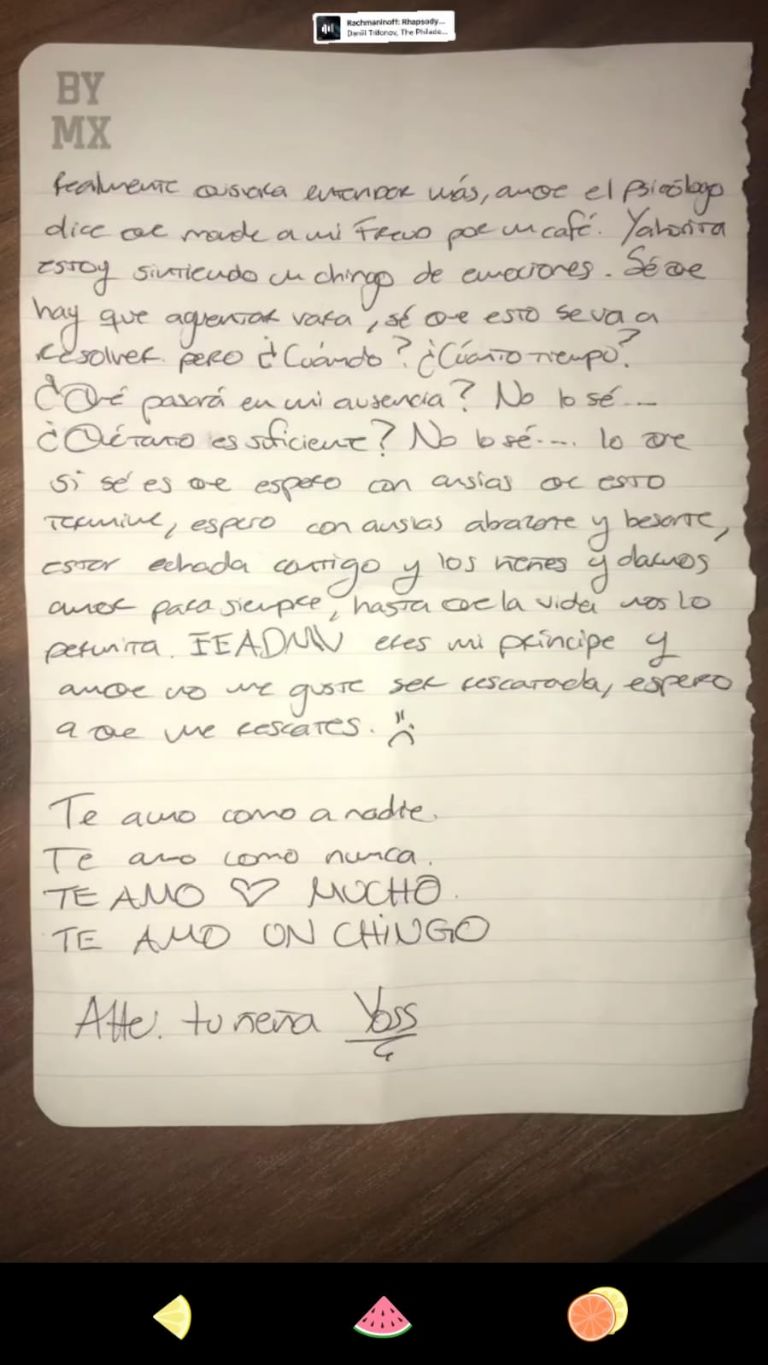 Rachmaninoff: Rhapsody...
Daniil Trifonov, The Philade...
BY
MX
Realmente quisiera entender más, aunque el psicólogo
dice que mande a mi Freud por un café. Y ahorita
estoy sintiendo un chingo de emociones. Sé que
hay que aguentar vara, sé que esto se va a
resolver pero ¿Cuándo? ¿Cúanto tiempo?
¿Qué pasará en mi ausencia? No lo sé...
¿Qué tanto es suficiente? No lo sé.... lo que
si sé es que espero con ansias que esto
termine, espero con ansias abrazarte y besarte,
estar echada contigo y los nenes y darnos
amor para siempre, hasta que la vida nos lo
permita. eres mi príncipe y
aunque no me guste ser rescatada, espero
a que me rescates.
Te amo como a nadie.
Te amo como nunca.
TE AMO ♡ MUCHO.
TE AMO UN CHINGO
Atte. tu nena Yoss